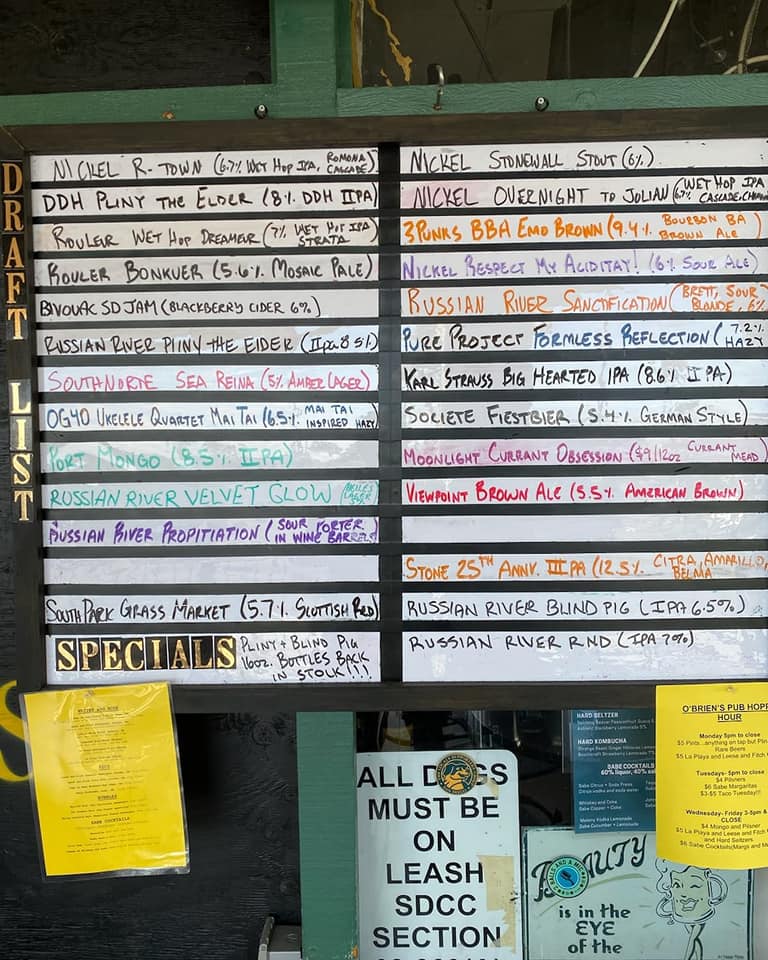 DRAFT LIST
NICKEL R-TOWN (6.7% WET HOP IPA, ROMONA CASCADE)
DDH PLINY THE ELDER (8% DDH IIPA)
ROULEUR WET HOP DREAMER (7% WET HOP IPA STRATA
ROULER BONKUER (5.6% MOSAIC PALE)
BIVOUAC SD JAM (BLACKBERRY CIDER 6%)
RUSSIAN RIVER PLINY THE ELDER (IIPA 8.5%)
SOUTHNORTE SEA REINA (5% AMBER LAGER)
OG40 UKELELE QUARTET MAI TAI (6.5% MAI TAI INSPIRED HAZY)
PORT MONGO (8.5% IIPA)
RUSSIAN RIVER VELVET GLOW
RUSSIAN RIVER PROPITIATION (SOUR PORTER IN WINE BARRELS)
SOUTH PARK GRASS MARKET (5.7% SCOTTISH RED)
SPECIALS PLINY + BLIND PIG
16OZ. BOTTLES BACK
IN STOCK!!!
NICKEL STONEWALL STOUT (6%)
NICKEL OVERNIGHT TO JULIAN (WET HOP IPA 6.7% CASCADE,
3PUNKS BBA EMO BROWN (9.4% BOURBON BA BROWN ALE)
NICKEL RESPECT MY ACIDITAY! (6% SOUR ALE)
RUSSIAN RIVER SANCTIFICATION (BRETT, SOUR BLONDE, 6%
PURE PROJECT FORMLESS REFLECTION (7.2% HAZY
KARL STRAUSS BIG HEARTED IPA (8.6% II PA)
SOCIETE FIESTBIER (5.4% GERMAN STYLE)
MOONLIGHT CURRANT OBSESSION ($9/12OZ CURRANT MEAD)
VIEWPOINT BROWN ALE (5.5% AMERICAN BROWN)
STONE 25TH ANNV. III PA (12.5% CITRA, AMARILLO, BELMA
RUSSIAN RIVER BLIND PIG (IPA 6.5%)
RUSSIAN RIVER RND (IPA 7%)
ALL DOGS
MUST BE
ON
LEASH
SDCC
SECTION
HARD SELTZER
HARD KOMBUCHA
SABE COCKTAILS
BEAUTY
is in the
EYE
of the
O'BRIEN'S PUB HOPP
HOUR
Monday 5pm to close
$5 Pints...anything on tap but Plin
Rare Beers
$5 La Playa and Leese and Fitch
Tuesdays- 5pm to close
$4 Pilsners
$6 Sabe Margaritas
$3-$5 Taco Tuesday!!!
Wednesday- Friday 3-5pm &
CLOSE
$4 Mongo and Pilsner
$5 La Playa and Leese and Fitch
and Hard Seltzers
$6 Sabe Cocktails(Margs and M